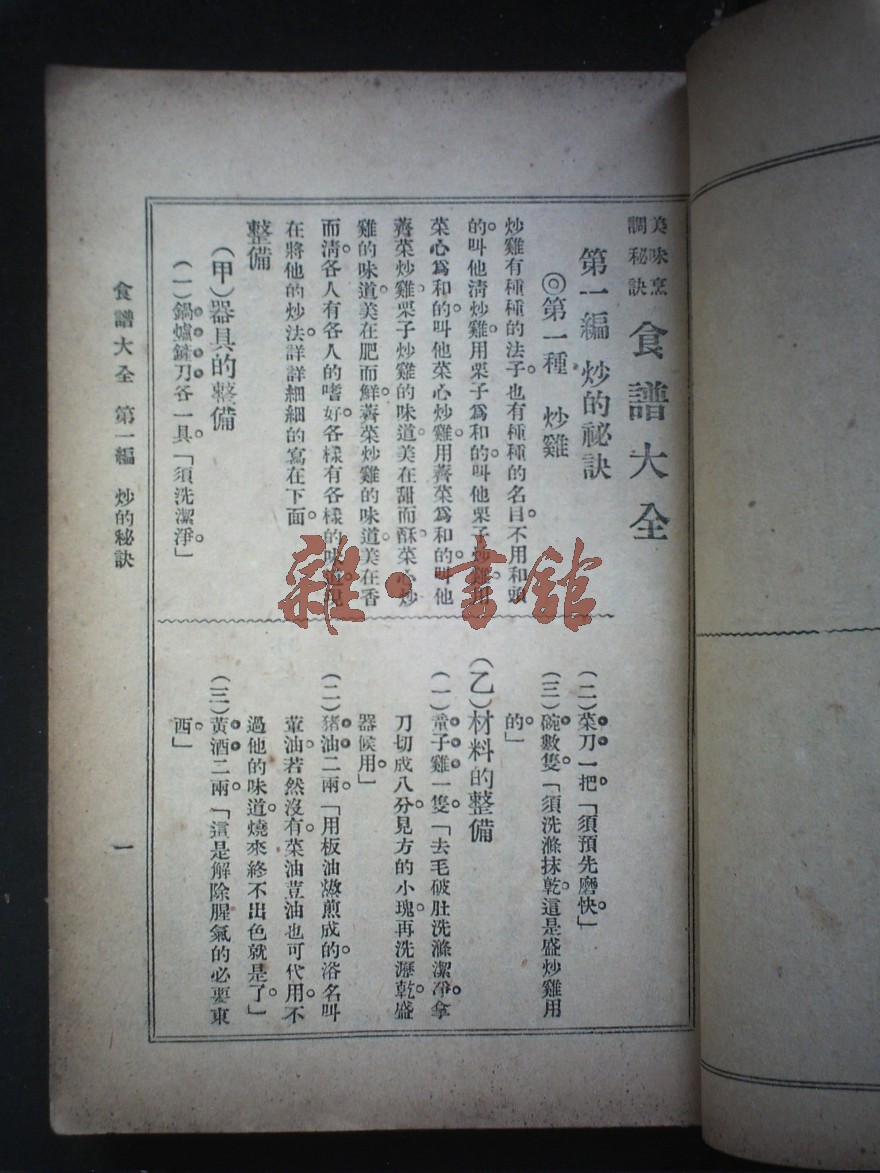 美味烹
調秘訣
食譜大全
第一編 炒的祕訣
◎第一種 炒雞
炒雞有種種的法子。也有種種的名目。不用和頭
的。叫他淸炒雞。用栗子爲和的。叫他栗子炒雞。用
菜心爲和的。叫他菜心炒雞。用薺菜爲和的。叫他
薺菜炒雞。栗子炒雞的味道。美在甜而酥。菜心炒
雞的味道。美在肥而鮮。薺菜炒雞的味道。美在香
而淸。各人有各人的嗜好。各樣有各樣的味道。現
在將他的炒法。詳詳細細的寫在下面。
整備
(甲)器具的整備
(一)鍋爐鏟刀各一具。「須洗潔淨。」
(二)菜刀一把。「須預先磨快。」
(三)碗數隻。「須洗滌抹乾。這是盛炒雞用
的。」
(乙)材料的整備
(一)童子雞一隻。「去毛破肚洗滌潔淨。拿
刀切成八分見方的小塊。再洗瀝乾。盛
器候用。」
(二)猪油二兩。「用板油熬煎成的。俗名叫
葷油。若然沒有。菜油荳油也可代用。不
過他的味道。燒來終不出色就是了。」
(三)黃酒二兩。「這是解除腥氣的必要東
西。」
食譜大全 第一編 炒的秘訣
一
雜·書館